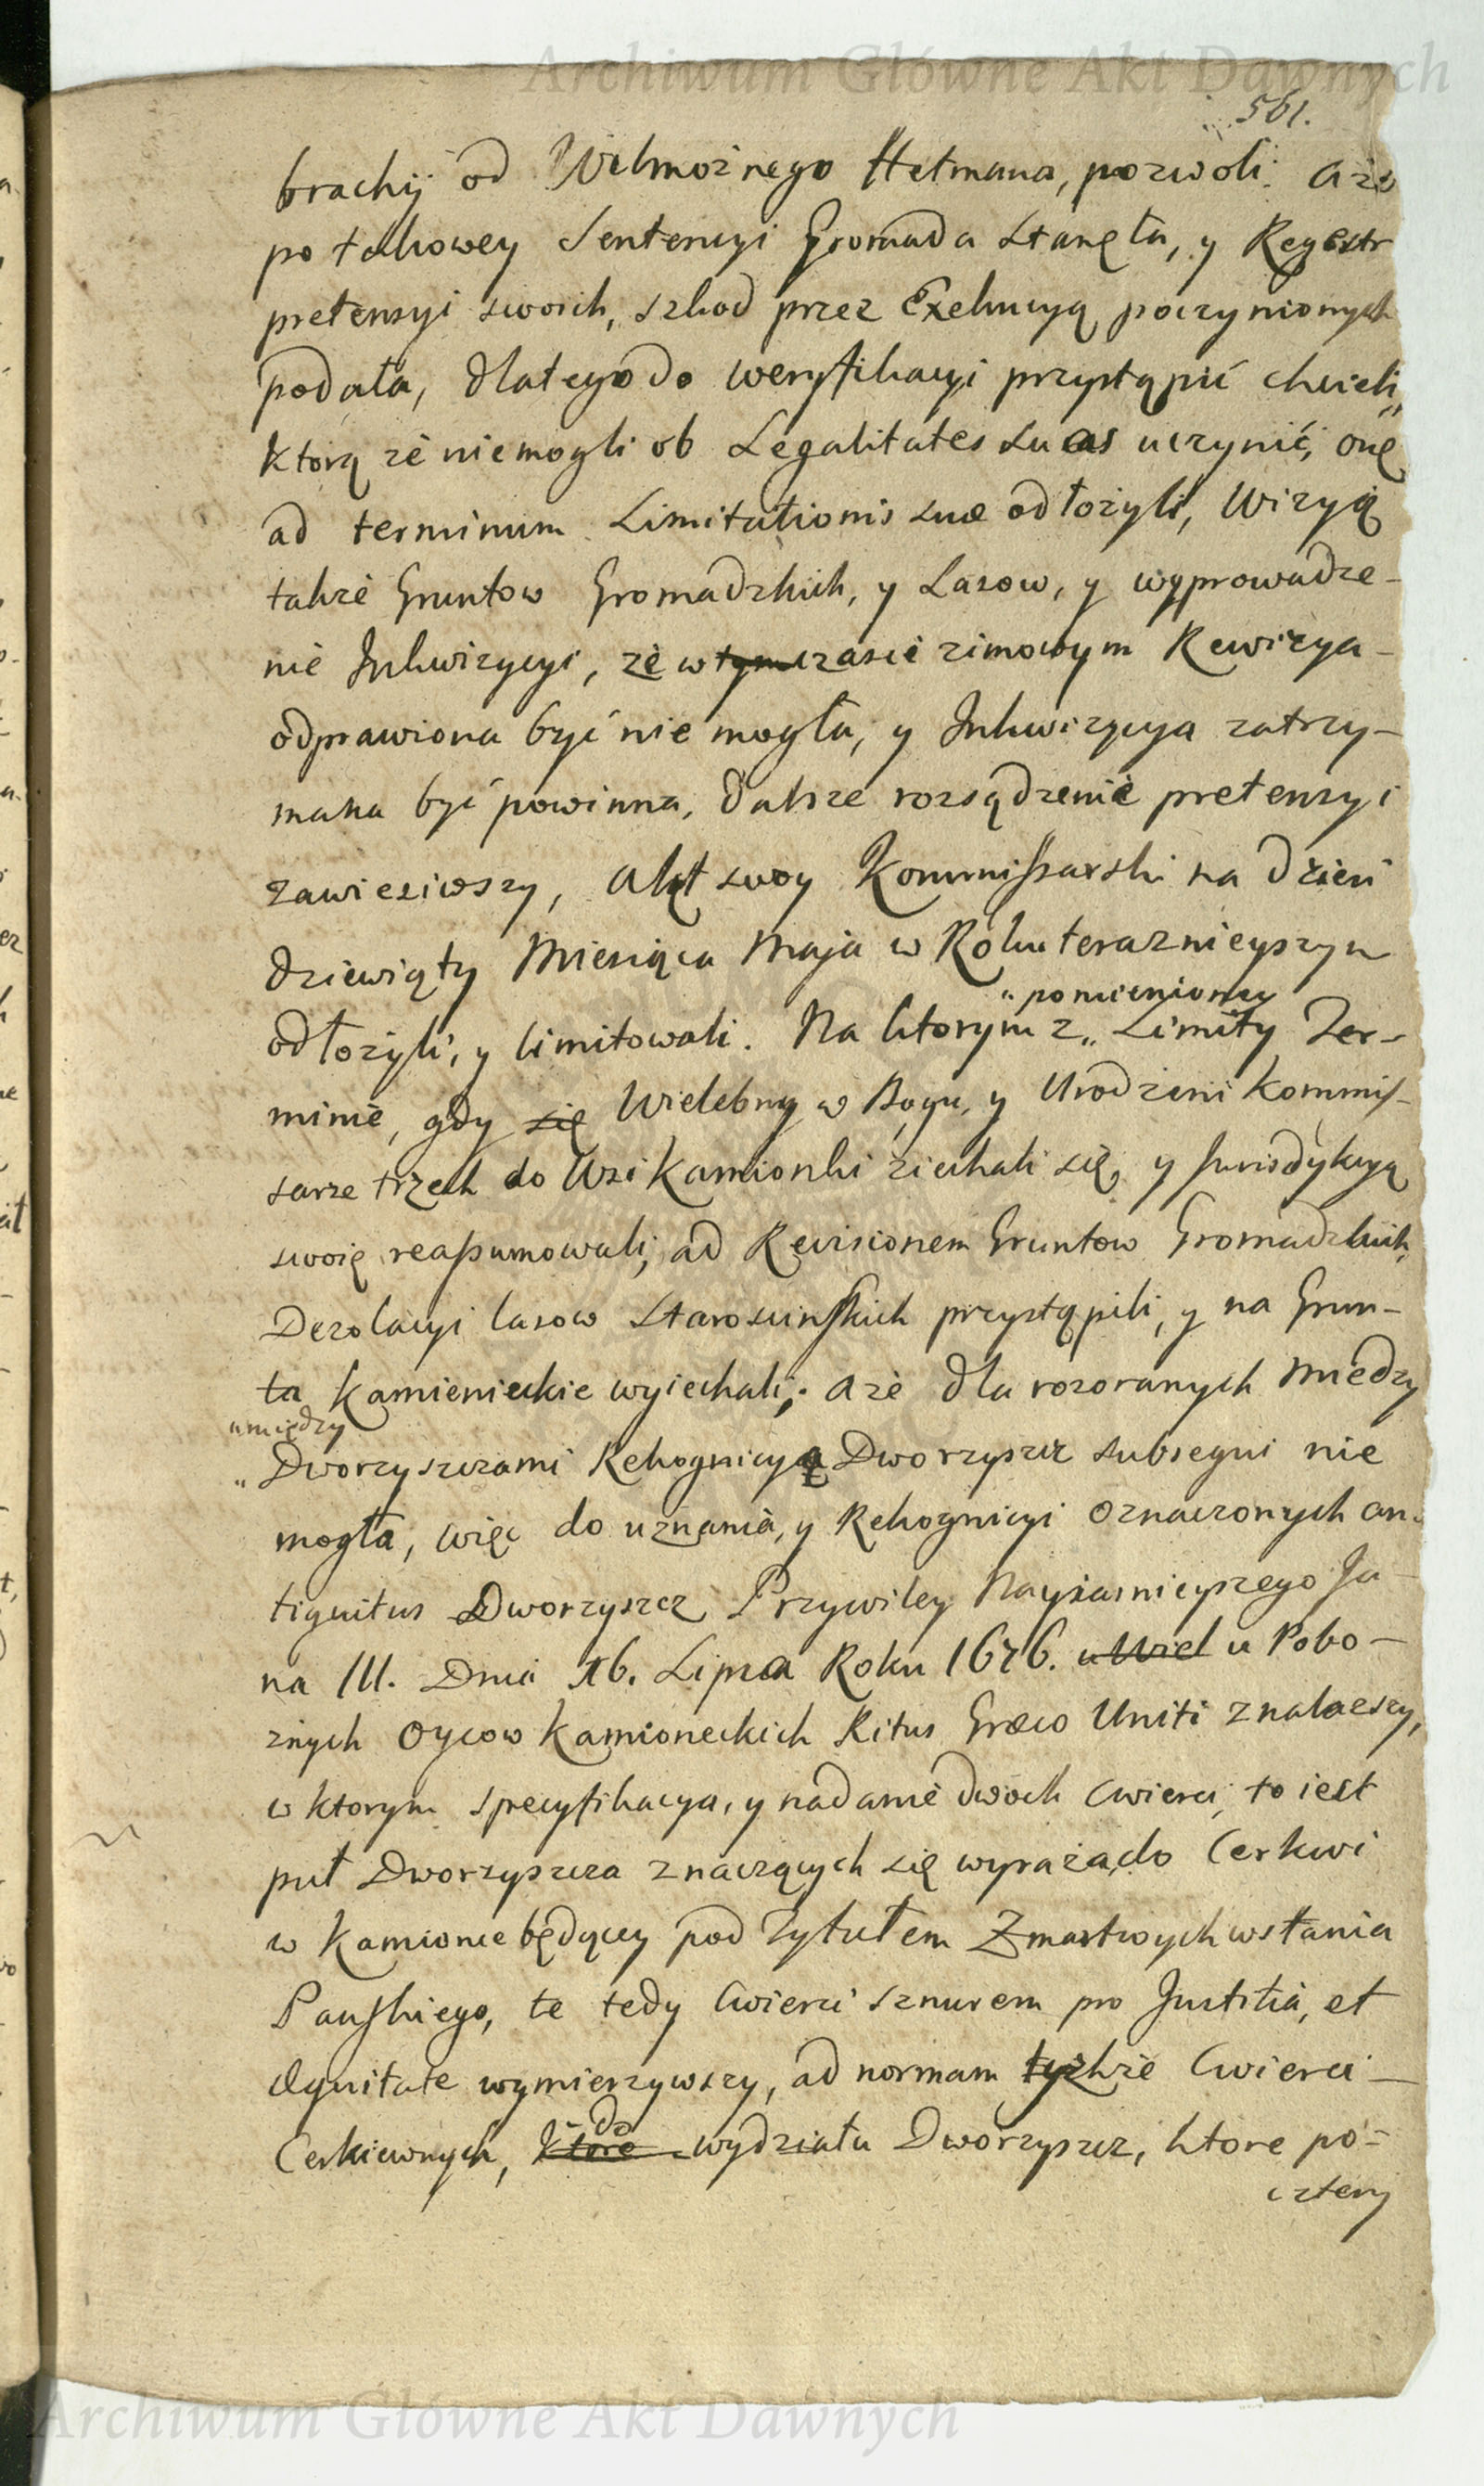 Archiwum Główne Akt Dawnych
561.
brachij od Wielmożnego Hetmana, pozwoli. A że
po takowey Sentencyi Gromada stanęła, y Regestr
pretensyi swoich, szkod przez Exekucyą poczynionych
podała, dlatego do weryfikacyi przystąpić chcieli,
ktorą że niemogli ob Legalitates suas uczynić, onę
ad terminum Limitationis suæ odłożyli, Wizyą
także Gruntow Gromadzkich, y Lasow, y wyprowadze-
nie Inkwizycyi, że w tym czasie zimowym Rewizya-
odprawiona być nie mogła, y Inkwizycya zatrzy-
mana być powinna, dalsze rozsądzenie pretensyi
zawiesiwszy, Akt swoy Kommissarski na dzień
dziewiąty Miesiąca Maja w Roku teraznieyszym
"pomienioney
odłożyli, y limitowali. Na ktorym z" Limity Ter-
minie, gdy się Wielebny w Bogu, y Urodzeni Kommis-
sarze trzech do Wsi Kamionki ziechali się, y Jurisdykcyą
swoię reassumowali, ad Revisionem Gruntow Gromadzkich,
Dezolacyi lasow Starościnskich przystąpili, y na Grun-
ta Kamienieckie wyiechali; A że dla rozoranych Miedzy
"między
"Dworzyszczami Rekognicyą Dworzyszcz subsequi nie
mogła, więc do uznania, y Rekognicyi oznaczonych an-
tiquitus Dworzyszcz Przywiley Nayiasnieyszego Ja-
na III. Dnia 16. Lipca Roku 1676. u Wiel u Pobo-
znych Oycow Kamioneckich Ritus Græco Uniti znalazszy,
w ktorym specyfikacya, y nadanie dwoch cwierci, to iest
puł Dworzyszcza znaczących się wyraża, do Cerkwi
w Kamionce będącey pod Tytułem Zmartwychwstania
Panskiego, te tedy Cwierci sznurem pro Justitia, et
Æquitate wymierzywszy, ad normam tychże Cwierci-
do
Cerkiewnych, ktore wydziału Dworzyszcz, ktore po=
cztery
Archiwum Główne Akt Dawnych